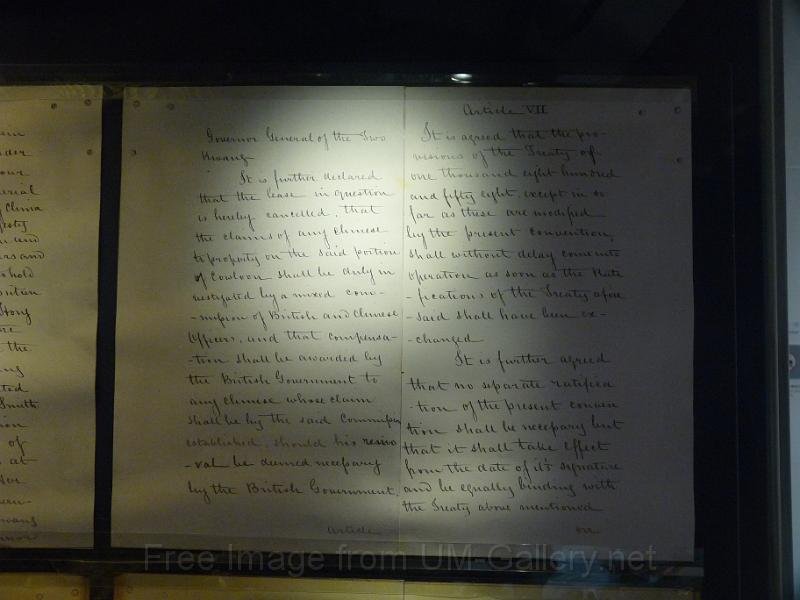 um
nder
our
perial
China
jesty
and
ers and
hold
Hong
re
the
ng
ted
Smith
ion
of
at
sor
ern-
Kwang
Governor General of the Two
Kwang
It is further declared
that the lease in question
is hereby cancelled, that
the claims of any Chinese
to property on the said portion
of Cowloon shall be duly in
vestigated by a mixed com-
-mission of British and Chinese
Officers, and that compensa-
-tion shall be awarded by
the British Government to
any Chinese whose claim
shall be by the said Commission
established, should his remo
-val be deemed necessary
by the British Government.
Article
Article VII
It is agreed that the pro-
visions of the Treaty of
one thousand eight hundred
and fifty eight, except in so
far as these are modified
by the present convention,
shall without delay come into
operation as soon as the Rati
-fications of the Treaty afore
-said shall have been ex-
-changed
It is further agreed
that no separate ratifica
-tion of the present conven
tion shall be necessary but
that it shall take effect
from the date of its signature
and be equally binding with
the Treaty above mentioned
on
Free Image from UM-Gallery.net